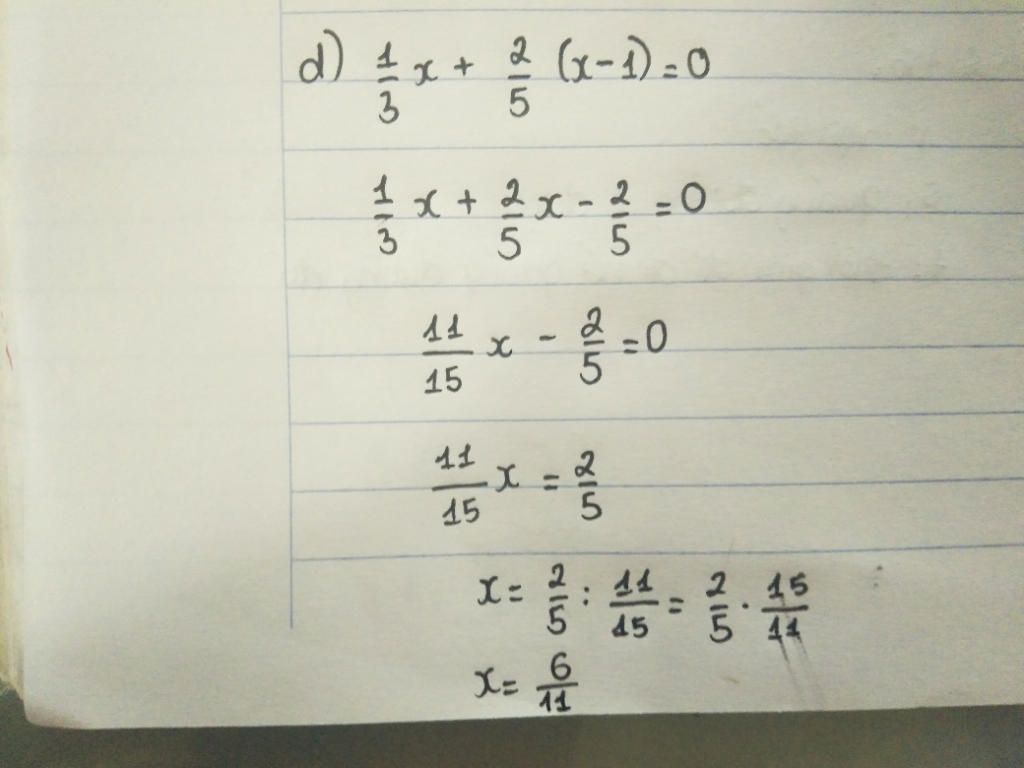 d) 1/3 x + 2/5 (x-1) = 0
1/3 x + 2/5 x - 2/5 = 0
11/15 x - 2/5 = 0
11/15 x = 2/5
x = 2/5 : 11/15 = 2/5 . 15/11
x = 6/11